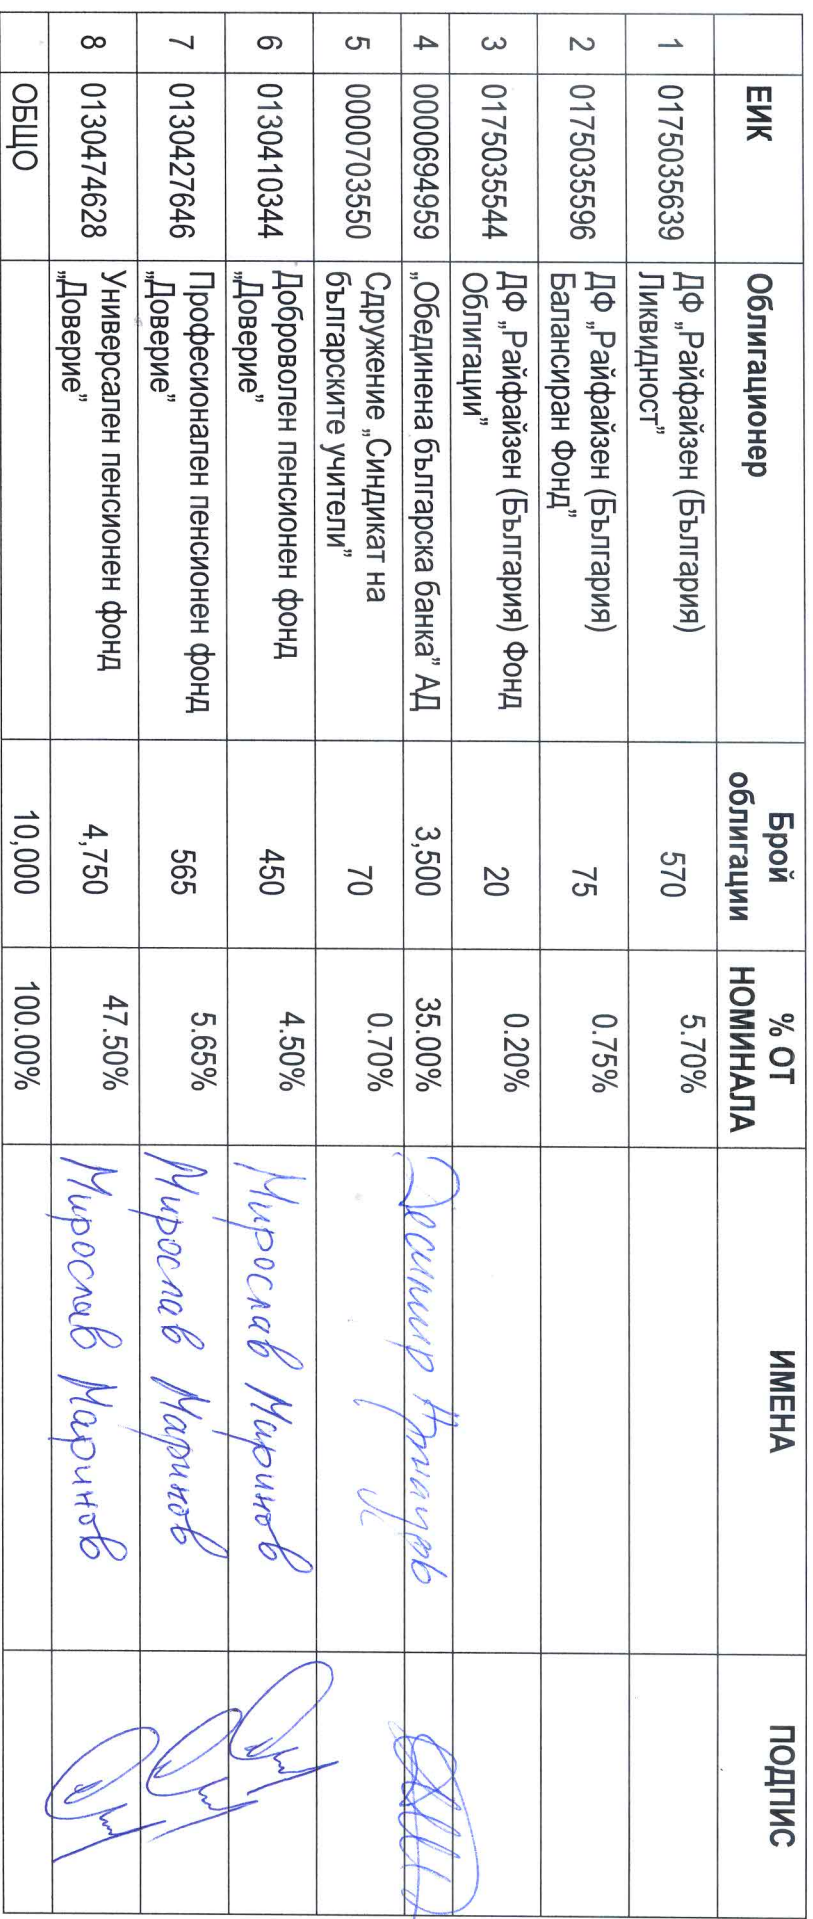 ЕИК Облигационер Брой облигации % ОТ НОМИНАЛА ИМЕНА ПОДПИС
1 0175035639 ДФ „Райфайзен (България) 570 5.70%
Ликвидност”
2 0175035596 ДФ „Райфайзен (България) 75 0.75%
Балансиран Фонд”
3 0175035544 ДФ „Райфайзен (България) Фонд 20 0.20%
Облигации”
4 0000694959 „Обединена българска банка” АД 3,500 35.00%
5 0000703550 Сдружение „Синдикат на 70 0.70%
българските учители”
6 0130410344 Доброволен пенсионен фонд 450 4.50% Мирослав Маринов
„Доверие”
7 0130427646 Професионален пенсионен фонд 565 5.65% Мирослав Маринов
„Доверие”
8 0130474628 Универсален пенсионен фонд 4,750 47.50% Мирослав Маринов
„Доверие”
ОБЩО 10,000 100.00%